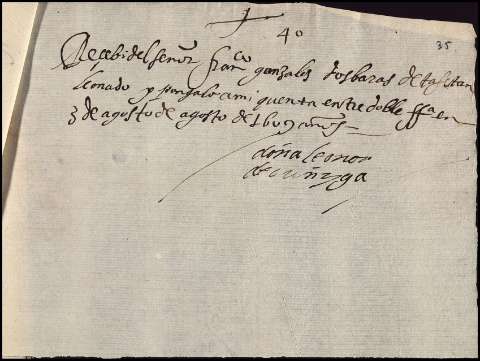 4o
35
Recebi del señor franco gonzales dos baras de tafetan
leonado y pongalo a mi quenta entre doble ffa en
3 de agosto de agosto de 1609 años
doña leonor
de cuñiga